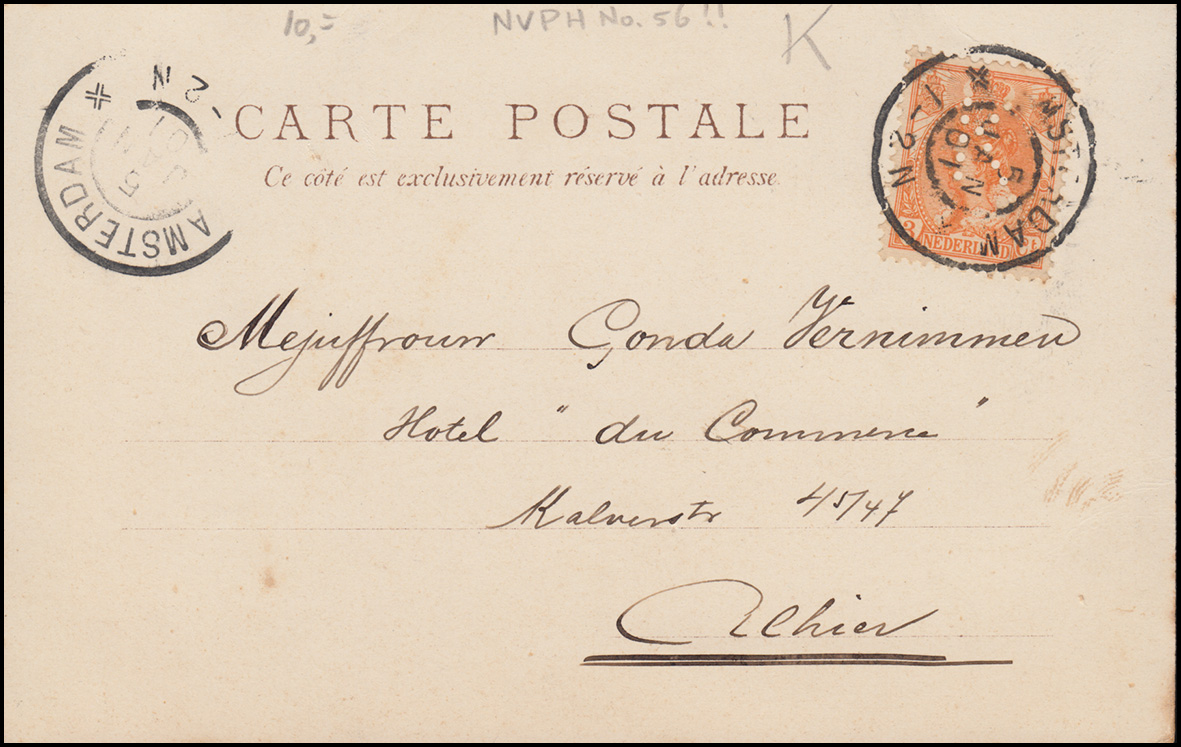 10,= NVPH No. 56!! K
AMSTERDAM 5 JAN 01 1-2 N
CARTE POSTALE
Ce côté est exclusivement réservé à l'adresse.
3 NEDERLAND ct
AMSTERDAM 5 JAN 01 1-2 N
Mejuffrouw Gonda Vernimmen
Hotel "du Commerce"
Kalverstr 45/47
Alhier